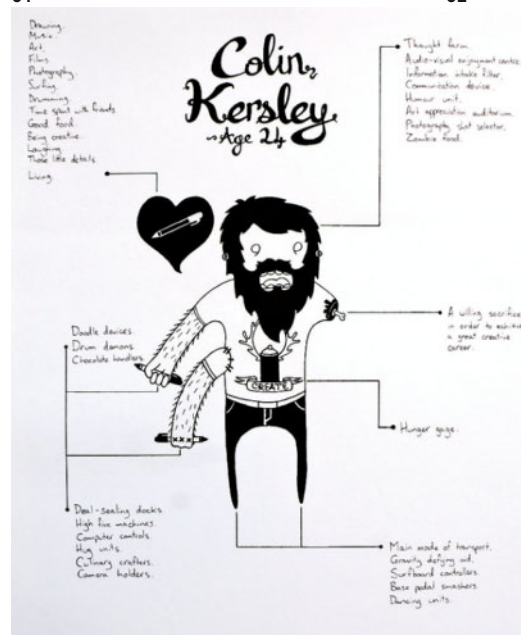 Drawing.
Music.
Art.
Film.
Photography.
Surfing.
Drumming.
Time spent with friends
Good food.
Being creative.
Laughing.
Those little details.
Living.
Colin
Kersley
~Age 24
Thought farm.
Audio-visual enjoyment centre.
Information intake filter.
Communication device.
Humour unit.
Art appreciation auditorium.
Photography shot selector.
Zombie food.
A willing sacrifice
in order to
a great creative
career.
Doodle devices.
Drum demons.
Chocolate handlers.
CREATE
Hunger gage.
Deal-sealing docks.
High five machines.
Computer controls.
Hug units.
Culinary crafters.
Camera holders.
Main mode of transport.
Gravity defying aid.
Surfboard controllers.
Bass pedal smashers.
Dancing units.